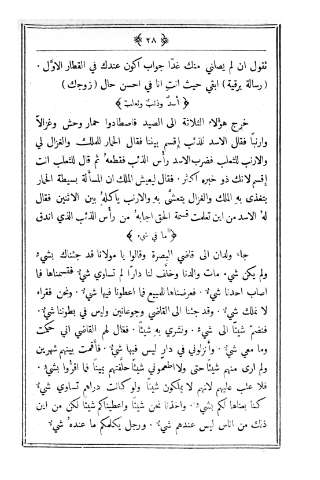 ﴿ ٢٨ ﴾
ثقول ان لم يصلني منك غدًا جواب اكون عندك في القطار الاول .
(رسالة برقية) ابقي حيث انتِ انا في احسن حال (زوجك)
﴿ أسدٌ وذئبٌ وثعلبٌ ﴾
خرج هؤلاء الثلاثة الى الصيد فاصطادوا حمار وحش وغزالاً
وارنبًا فقال الاسد للذئب إقسم بيننا فقال الحمار للملك والغزال لي
والارنب للثعلب فضرب الاسد رأس الذئب فقطعه ثم قال للثعلب انت
إقسم لانك ذو خبرة اكثر. فقال ليعش الملك ان المسألة بسيطة الحمار
يتغذى به الملك والغزال يتعشى به والارنب يأكله بين الاثنين فقال
له الاسد من اين تعلمت قسمة الحق اجابه من رأس الذئب الذي اندق
﴿ ما في شيء ﴾
جاء ولدان الى قاضي البصرة وقالوا يا مولانا قد جئناك بشيء
ولم يكن شيء مات والدنا وخلّف لنا دارًا لم تساوي شيء فقسمناها فما
اصاب احدنا شيء فعرضناها للبيع فما اعطونا فيها شيء . ونحن فقراء
لا نملك شيء . وقد جئنا الى القاضي وجوعانين وليس في بطوننا شيء.
شيئًا الى شيء . ونشتري به شيئًا . فقال لهم القاضي اني حكمت
وما معي شيء . وأنزلوني في دار ليس فيها شيء . فأقمت بينهم شهرين
ولم ارى منهم شيئًا حتى ولا اطعموني شيئًا حلّفتهم يمينًا فما اقرُّوا بشيء .
فلا عتب عليهم لانهم لا يملكون شيئًا ولو كانت دراهم تساوي شيء
كنا بعناها لكم بشيء . واخذنا نحن شيئًا واعطيناكم شيئًا لكن من اين
ذلك من اناس ليس عندهم شيء . ورجل يكلمكم ما عنده شيء